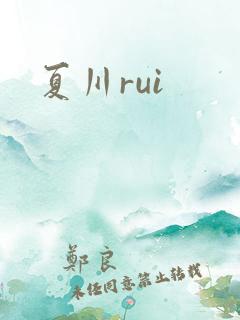 夏川rui
鄭良
未经同意禁止转载